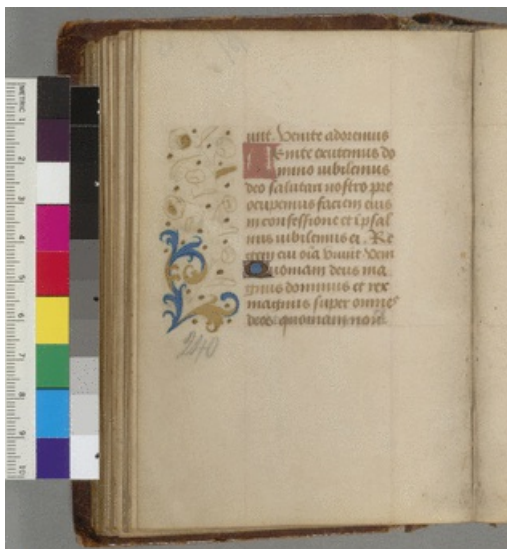 uunt. Venite adoremus
Venite exultemus do
mino iubilemus
deo salutari nostro pre
ocupemus faciem eius
in confessione et i psal
mis iubilemus ei. Re
gem cui oīa viuūt Ven
Quoniam deus ma
gnus dominus et rex
magnus super omnes
deos quoniam nō
240
METRIC 1
2
3
4
5
6
7
8
9
10